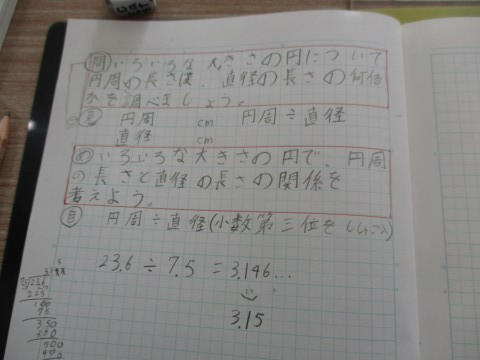 問 いろいろな大きさの円について
円周の長さは、直径の長さの何倍
かを調べましょう。
見 円周 cm 円周÷直径
直径 cm
め いろいろな大きさの円で、円周
の長さと直径の長さの関係を
考えよう。
自 円周÷直径(小数第三位をししゃごにゅう)
23.6÷7.5=3.146...
3.15